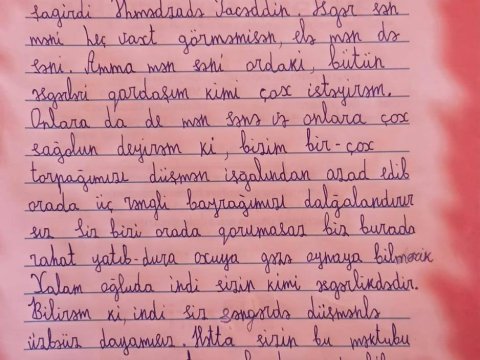 şagirdi Əhmədzadə Tacəddin. Əgər sən
məni heç vaxt görməmisən, elə mən də
səni. Amma mən səni ordakı, bütün
əsgərləri qardaşım kimi çox istəyirəm.
Onlara da de mən sənə və onlara çox
sağolun deyirəm ki, bizim bir-çox
torpağımızı düşmən işğalından azad edib
orada üç rəngli bayrağımızı dalğalandırır
sız. Siz bizi orada qorumasaz biz burada
rahat yatıb-dura oxuya gəzə oynaya bilmərik
Xalam oğluda indi sizin kimi əsgərlikdədir.
Bilirəm ki, indi siz səngərdə düşmənlə
üzbəüz dayamısız. Hətta sizin bu məktubu